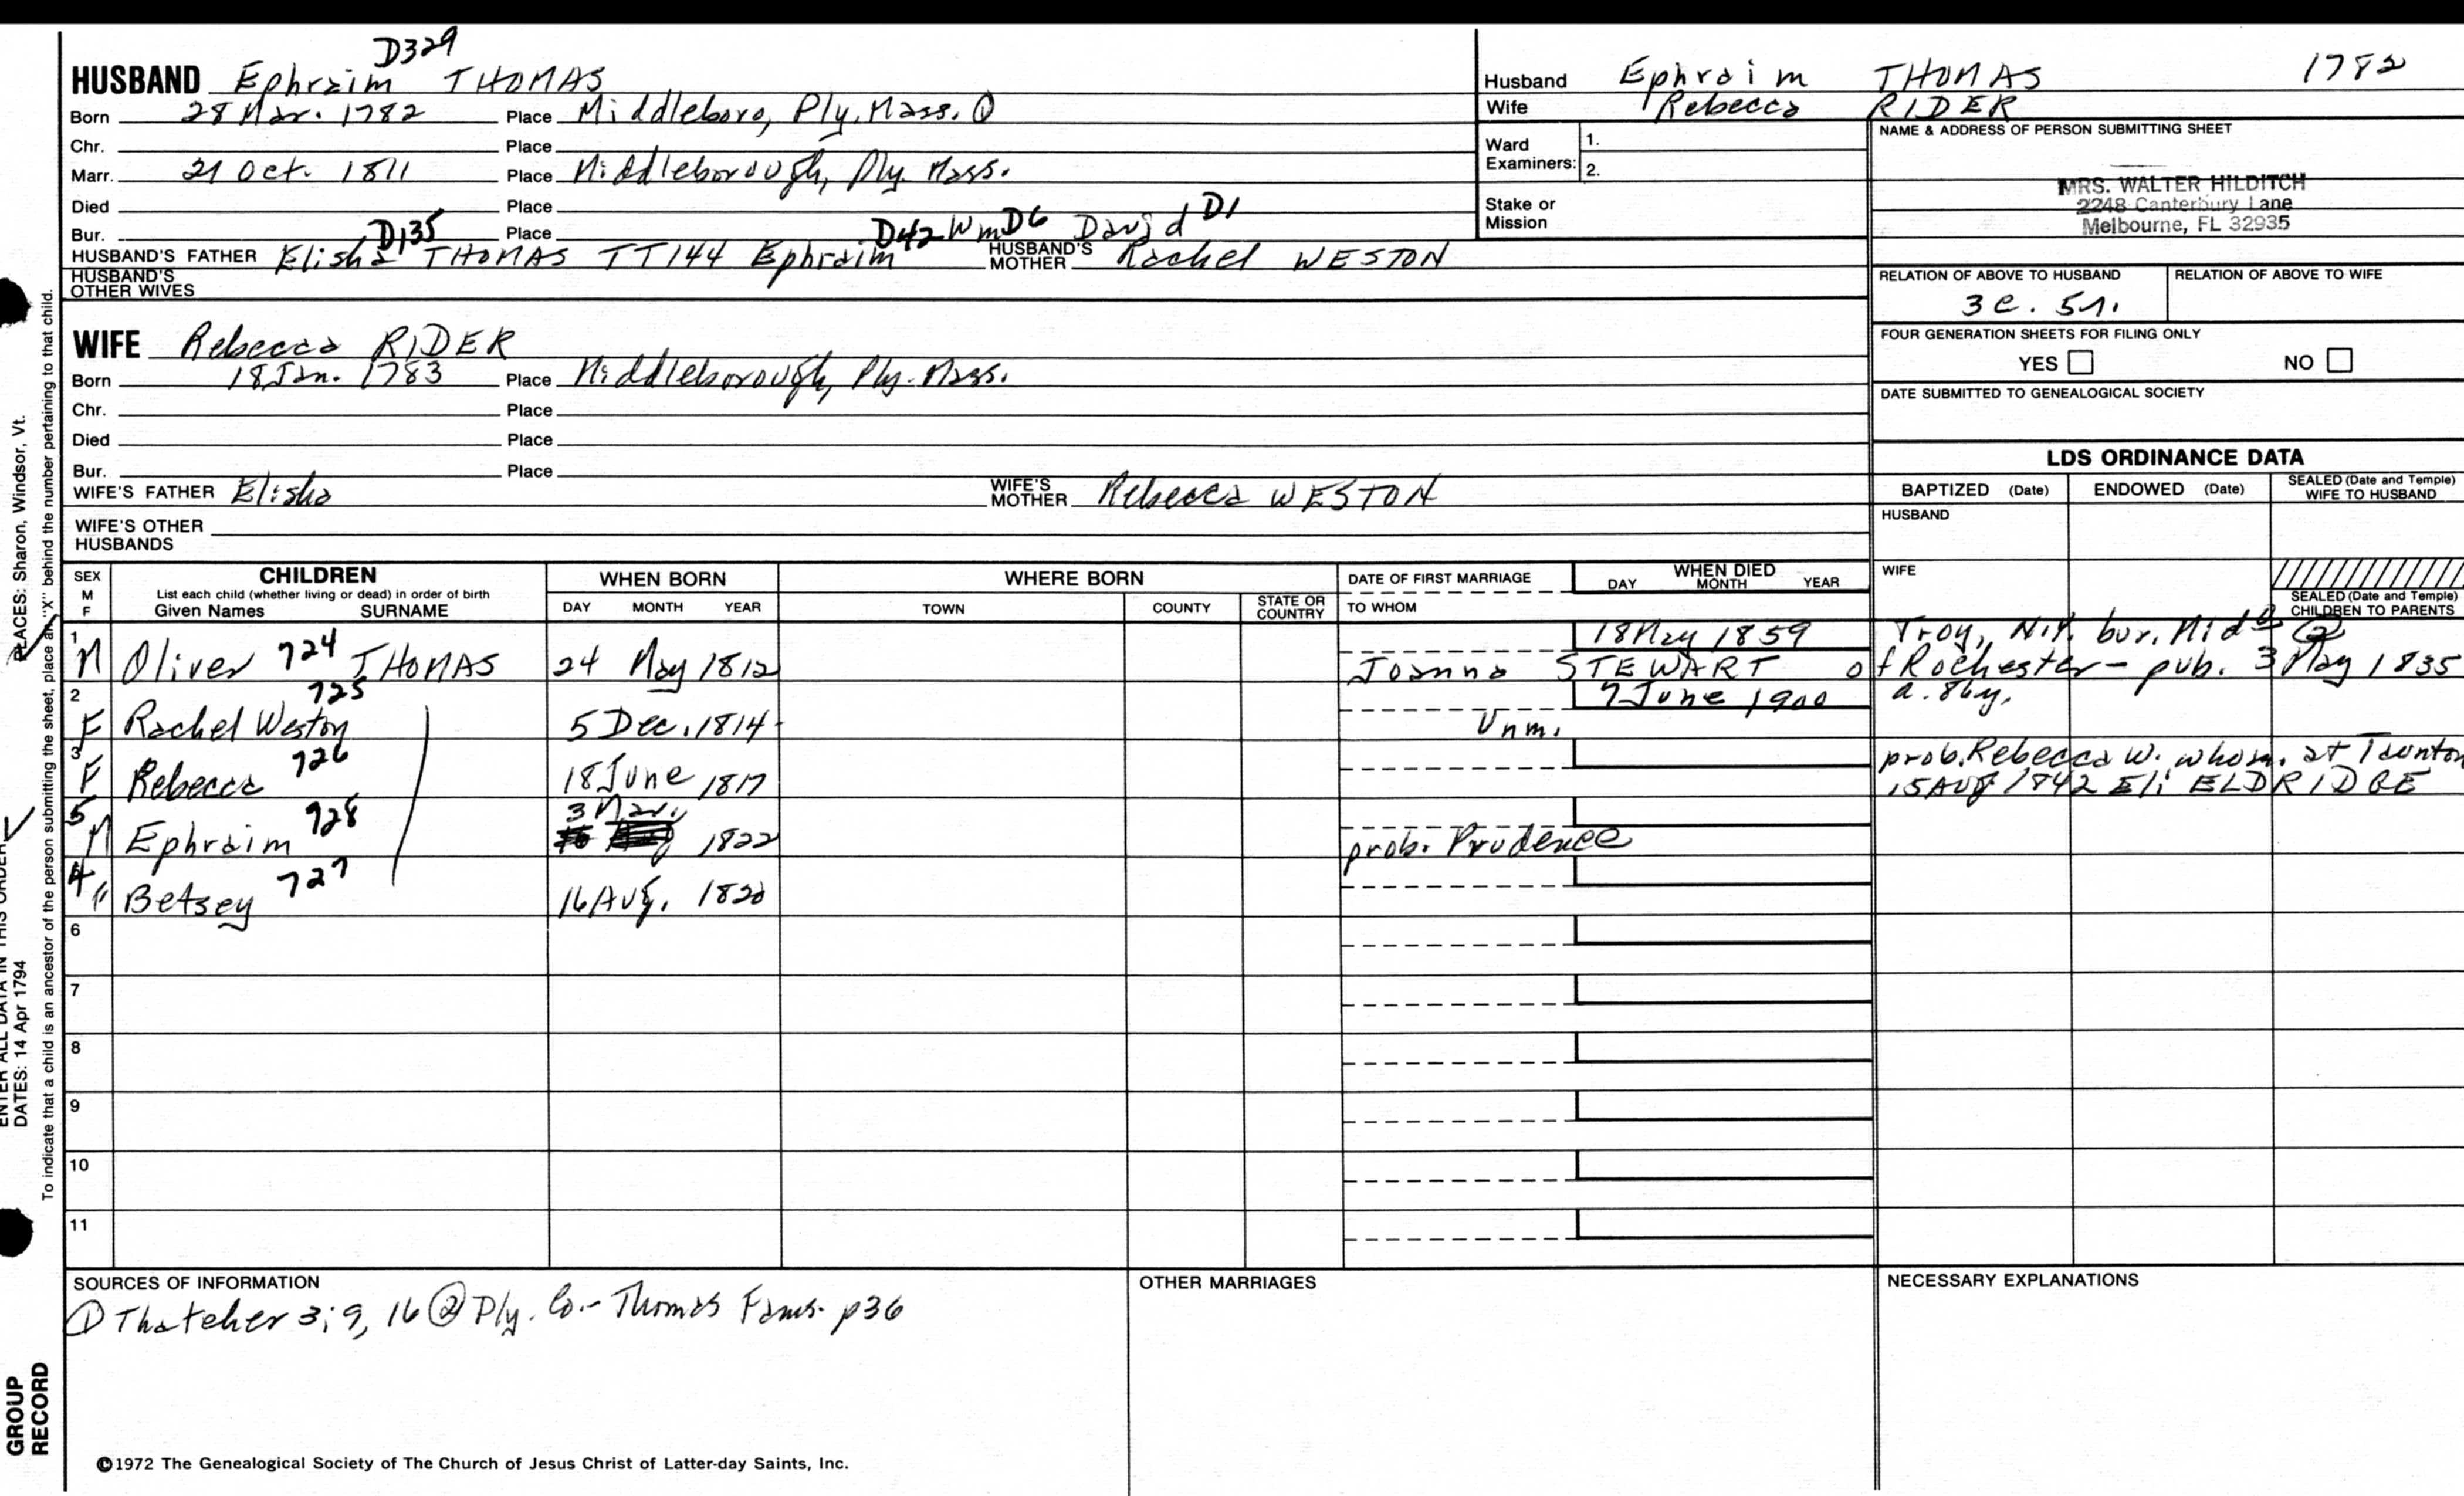 D329
HUSBAND Ephraim THOMAS
Born 28 Mar. 1782 Place Middleboro, Ply. Mass. ①
Chr. Place
Marr. 21 Oct. 1811 Place Middleborough, Ply. Mass.
Died Place
Bur. Place
D135 D42 Wm D6 David D1
HUSBAND'S FATHER Elisha THOMAS TT144 Ephraim HUSBAND'S MOTHER Rachel WESTON
HUSBAND'S OTHER WIVES
WIFE Rebecca RIDER
Born 18 Jan. 1783 Place Middleborough, Ply. Mass.
Chr. Place
Died Place
Bur. Place
WIFE'S FATHER Elisha WIFE'S MOTHER Rebecca WESTON
WIFE'S OTHER HUSBANDS
Husband Ephraim THOMAS 1782
Wife Rebecca RIDER
Ward Examiners: 1.
2.
Stake or Mission
NAME & ADDRESS OF PERSON SUBMITTING SHEET
MRS. WALTER HILDITCH
2248 Canterbury Lane
Melbourne, FL 32935
RELATION OF ABOVE TO HUSBAND RELATION OF ABOVE TO WIFE
3c. 5r.
FOUR GENERATION SHEETS FOR FILING ONLY
YES NO
DATE SUBMITTED TO GENEALOGICAL SOCIETY
LDS ORDINANCE DATA
BAPTIZED (Date) ENDOWED (Date) SEALED (Date and Temple) WIFE TO HUSBAND
HUSBAND
WIFE
SEALED (Date and Temple) CHILDREN TO PARENTS
SEX M F
CHILDREN
List each child (whether living or dead) in order of birth
Given Names SURNAME
WHEN BORN
DAY MONTH YEAR
WHERE BORN
TOWN COUNTY STATE OR COUNTRY
DATE OF FIRST MARRIAGE
TO WHOM
WHEN DIED
DAY MONTH YEAR
1 18 May 1859 Troy, N.Y. bur. Mid ②
M Oliver 724 THOMAS 24 May 1812 Joanna STEWART of Rochester - pub. 3 May 1835
2 725 7 June 1900 a. 86y.
F Rachel Weston 5 Dec. 1814 Unm.
3 726 prob. Rebecca W. who m. at Taunton
F Rebecca 18 June 1817 15 Aug 1842 Eli ELDRIDGE
5 928 3 Mar.
M Ephraim 1822 prob. Prudence
4 727
" Betsey 16 Aug. 1820
6
7
8
9
10
11
SOURCES OF INFORMATION
① Thatcher 3; 9, 16 ② Ply. Co. - Thomas Fams. p36
OTHER MARRIAGES
NECESSARY EXPLANATIONS
©1972 The Genealogical Society of The Church of Jesus Christ of Latter-day Saints, Inc.
PLACES: Sharon, Windsor, Vt.
ENTER ALL DATA IN THIS ORDER
DATES: 14 Apr 1794
To indicate that a child is an ancestor of the person submitting the sheet, place an "X" behind the number pertaining to that child.
GROUP
RECORD